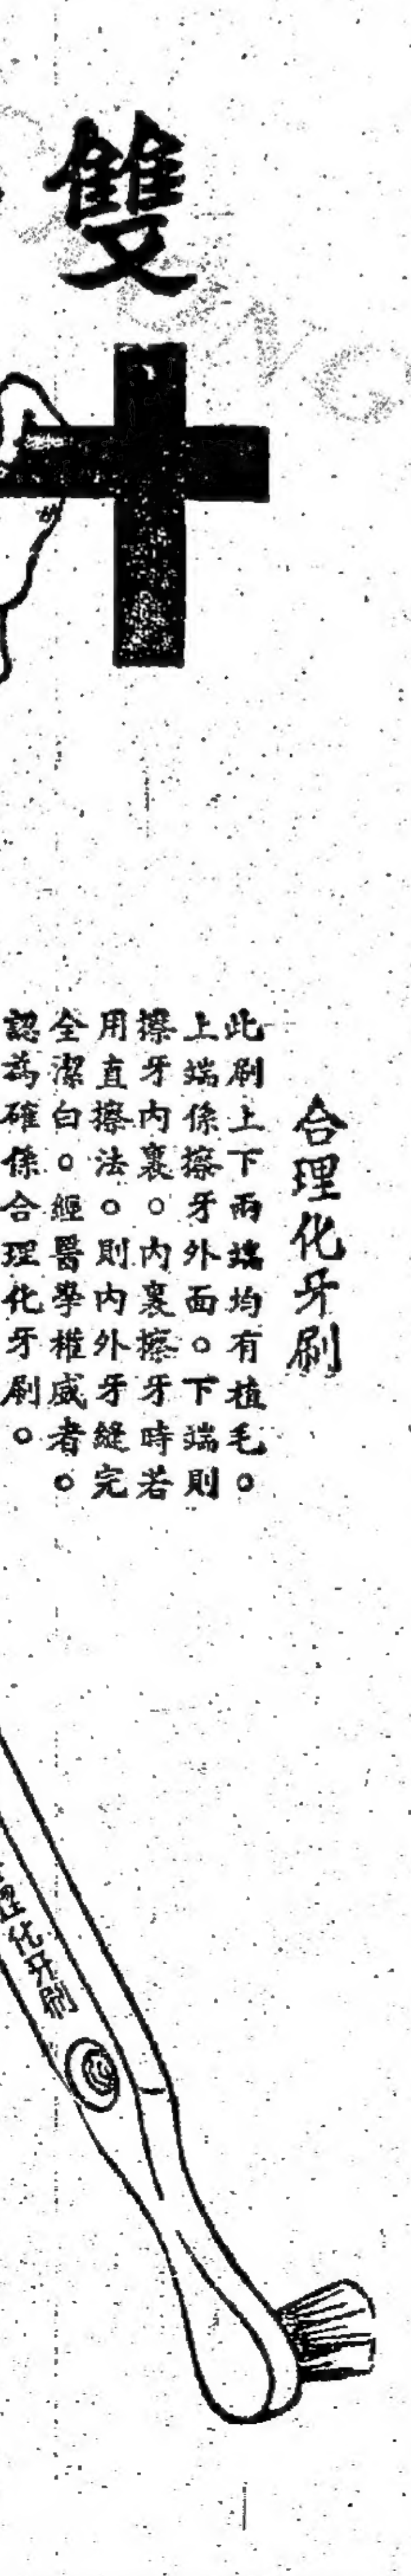 雙
合理化牙刷
此刷上下兩端均有植毛。
上端係擦牙外面。下端則
擦牙內裏。內裏擦牙時若
用直擦法。則內外牙縫完
全潔白。經醫學權威者。
認爲確係合理化牙刷。
理化牙刷